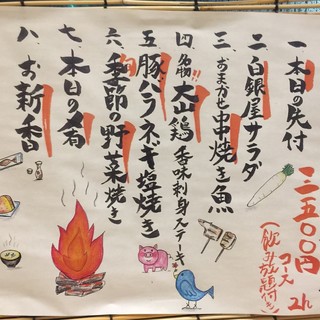 一 本日の先付
二 白銀屋サラダ
三 おまかせ串焼き魚
四 名物!! 大山鶏香味刺身 ステーキ
五 豚バラネギ塩焼き
六 季節の野菜焼き
七 本日の肴
八 お新香
二五〇〇円
コース 2h
(飲み放題付き)